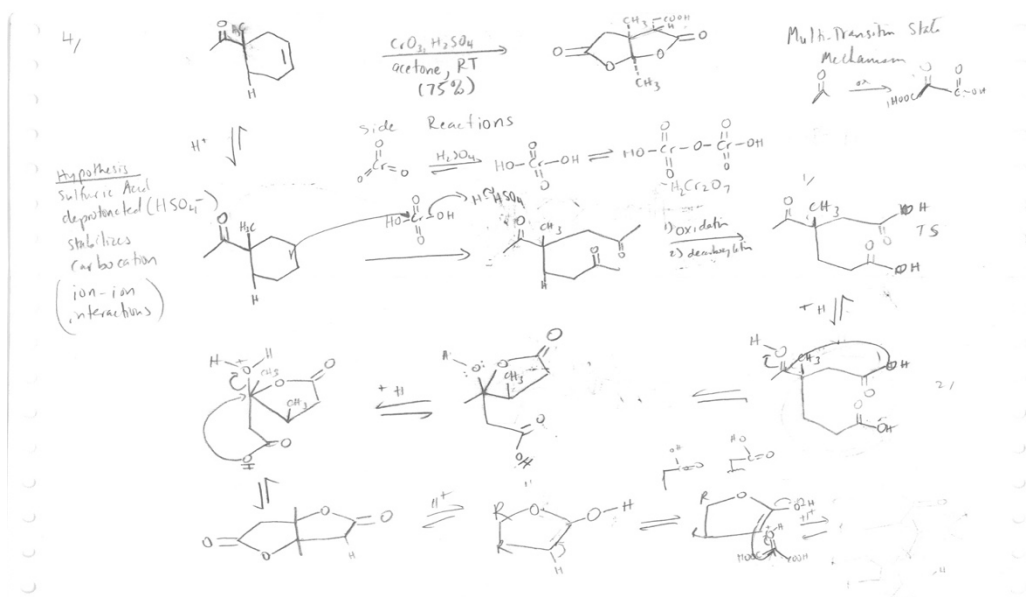 4/
O
H₃C
H
CrO₃, H₂SO₄
acetone, RT
(75%)
CH₃
COOH
H
O
O
O
O
CH₃
Multi-Transition State
Mechanism
O
ox
HOOC
O
O
C-OH
H⁺
Side Reactions
O
Cr
O
O
H₂SO₄
HO-Cr-OH
O
O
HO-Cr-O-Cr-OH
O
O
O
O
H₂Cr₂O₇
Hypothesis
Sulfuric Acid
deprotonated (HSO₄⁻)
stabilizes
carbocation
(ion-ion
interactions)
O
H₃C
H
HO-Cr-OH
O
O
H HSO₄
O
CH₃
O
O
H
1) Oxidation
2) decarboxylation
1/
O
CH₃
OH
O
TS
O
OH
+H
H
O
CH₃
OH
O
O
OH
2/
H
+
H
O
CH₃
O
O
CH₃
O
+H
O
O
O
CH₃
O
O
O
O
O
H
H⁺
R
O
O-H
H
R
O
OH
H⁺
HOOC
COOH